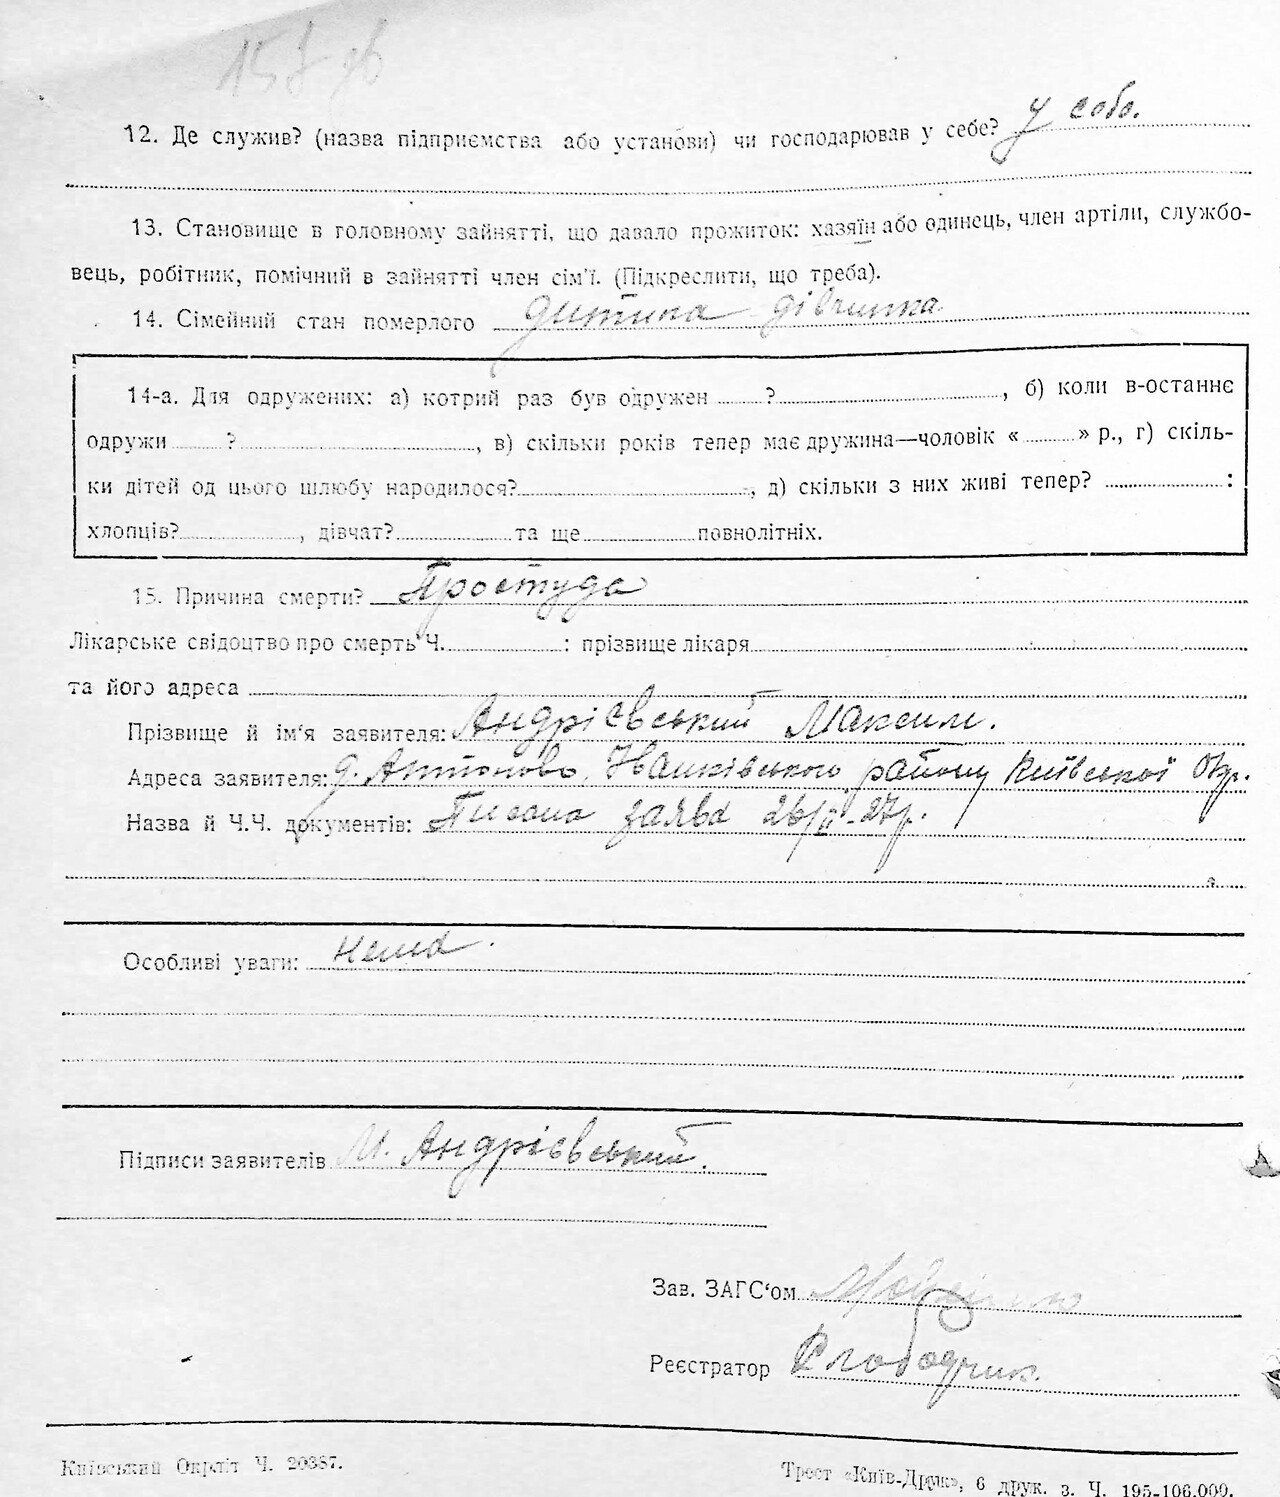 157 зв
12. Де служив? (назва підприємства або установи) чи господарював у себе? у собо.
13. Становище в головному зайнятті, що давало прожиток: хазяїн або одинець, член артіли, службо-
вець, робітник, помічний в зайнятті член сім'ї. (Підкреслити, що треба).
14. Сімейний стан померлого дитина дівчинка
14-а. Для одружених: а) котрий раз був одружен ? , б) коли в-останнє
одружи ? , в) скільки років тепер має дружина—чоловік « » р., г) скіль-
ки дітей од цього шлюбу народилося? , д) скільки з них живі тепер? :
хлопців? , дівчат? та ще повнолітніх.
15. Причина смерти? Простуда
Лікарське свідоцтво про смерть Ч. : прізвище лікаря
та його адреса
Прізвище й ім'я заявителя: Андрієвський Максим.
Адреса заявителя: д. Антоново, Іванківського району Київської Окр.
Назва й Ч.Ч. документів: Писана заява 26/II-27р.
Особливі уваги: нема.
Підписи заявителів М. Андрієвський.
Зав. ЗАГС'ом
Реєстратор Слободчик.
Київський Окрліт Ч. 20387.
Трест «Київ-Друк», 6 друк. з. Ч. 195-106.000.